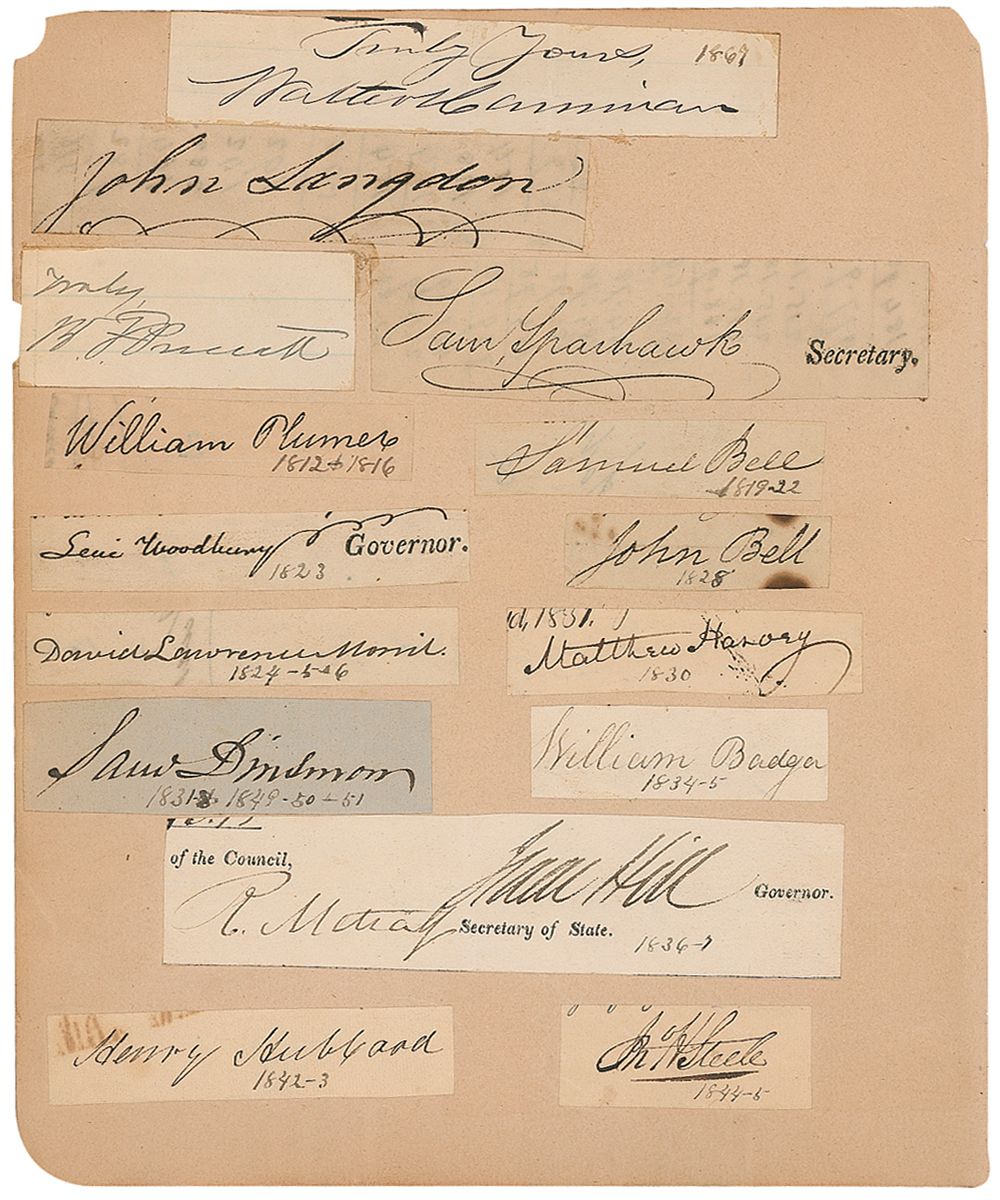 Truly Yours, 1867
Walter Harriman
John Langdon
Truly,
Sam, Sparhawk Secretary.
William Plumer
1812 + 1816
Samuel Bell
1819-22
Levi Woodbury Governor.
1823
John Bell
1828
David Lawrence Morril.
1824-5-6
d, 1831.
Matthew Harvey
1830
Saml Dinsmoor
1849-50-51
William Badger
1834-5
of the Council,
Isaac Hill Governor.
R. Metcalf Secretary of State.
1836-7
Henry Hubbard
1842-3
Jno H Steele
1844-5